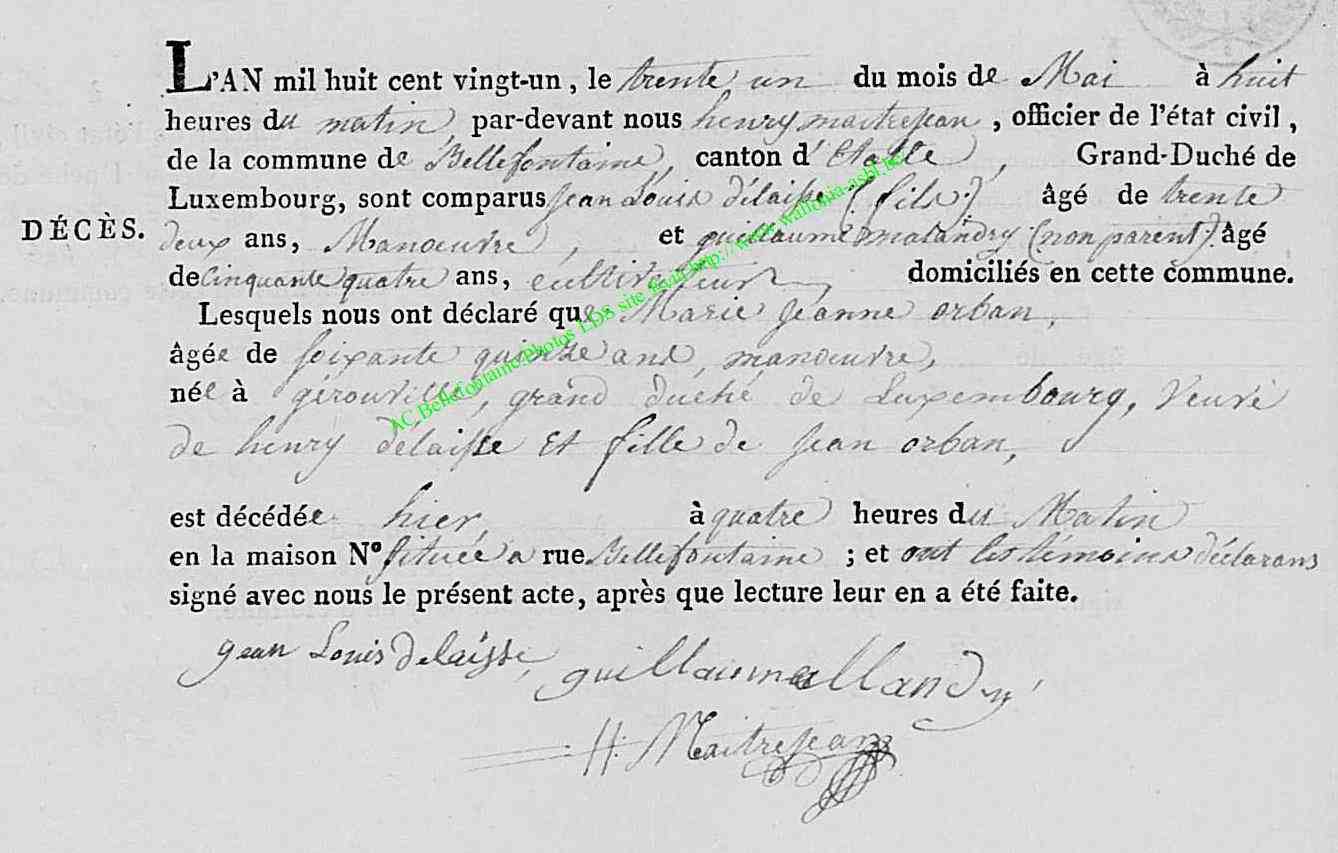 L'AN mil huit cent vingt-un, le trente un du mois de Mai à huit
heures du matin, par-devant nous henry maitrejean, officier de l'état civil,
de la commune de Bellefontaine, canton d'Etalle, Grand-Duché de
Luxembourg, sont comparus jean Louis delaisse (fils) âgé de trente
DÉCÈS. deux ans, Manœuvre, et guillaume malandry (non parent) âgé
de cinquante quatre ans, cultivateur, domiciliés en cette commune.
Lesquels nous ont déclaré que Marie jeanne orban,
âgée de soixante quinze ans, manœuvre,
née à gérouville, grand duché de Luxembourg, veuve
de henry delaisse et fille de jean orban,
est décédée hier, à quatre heures du Matin
en la maison N° située a rue Bellefontaine ; et ont les témoins déclarans
signé avec nous le présent acte, après que lecture leur en a été faite.
jean Louis Delaisse, guillaume
H: Maitrejean
AC Bellefontaine Photos LDS site